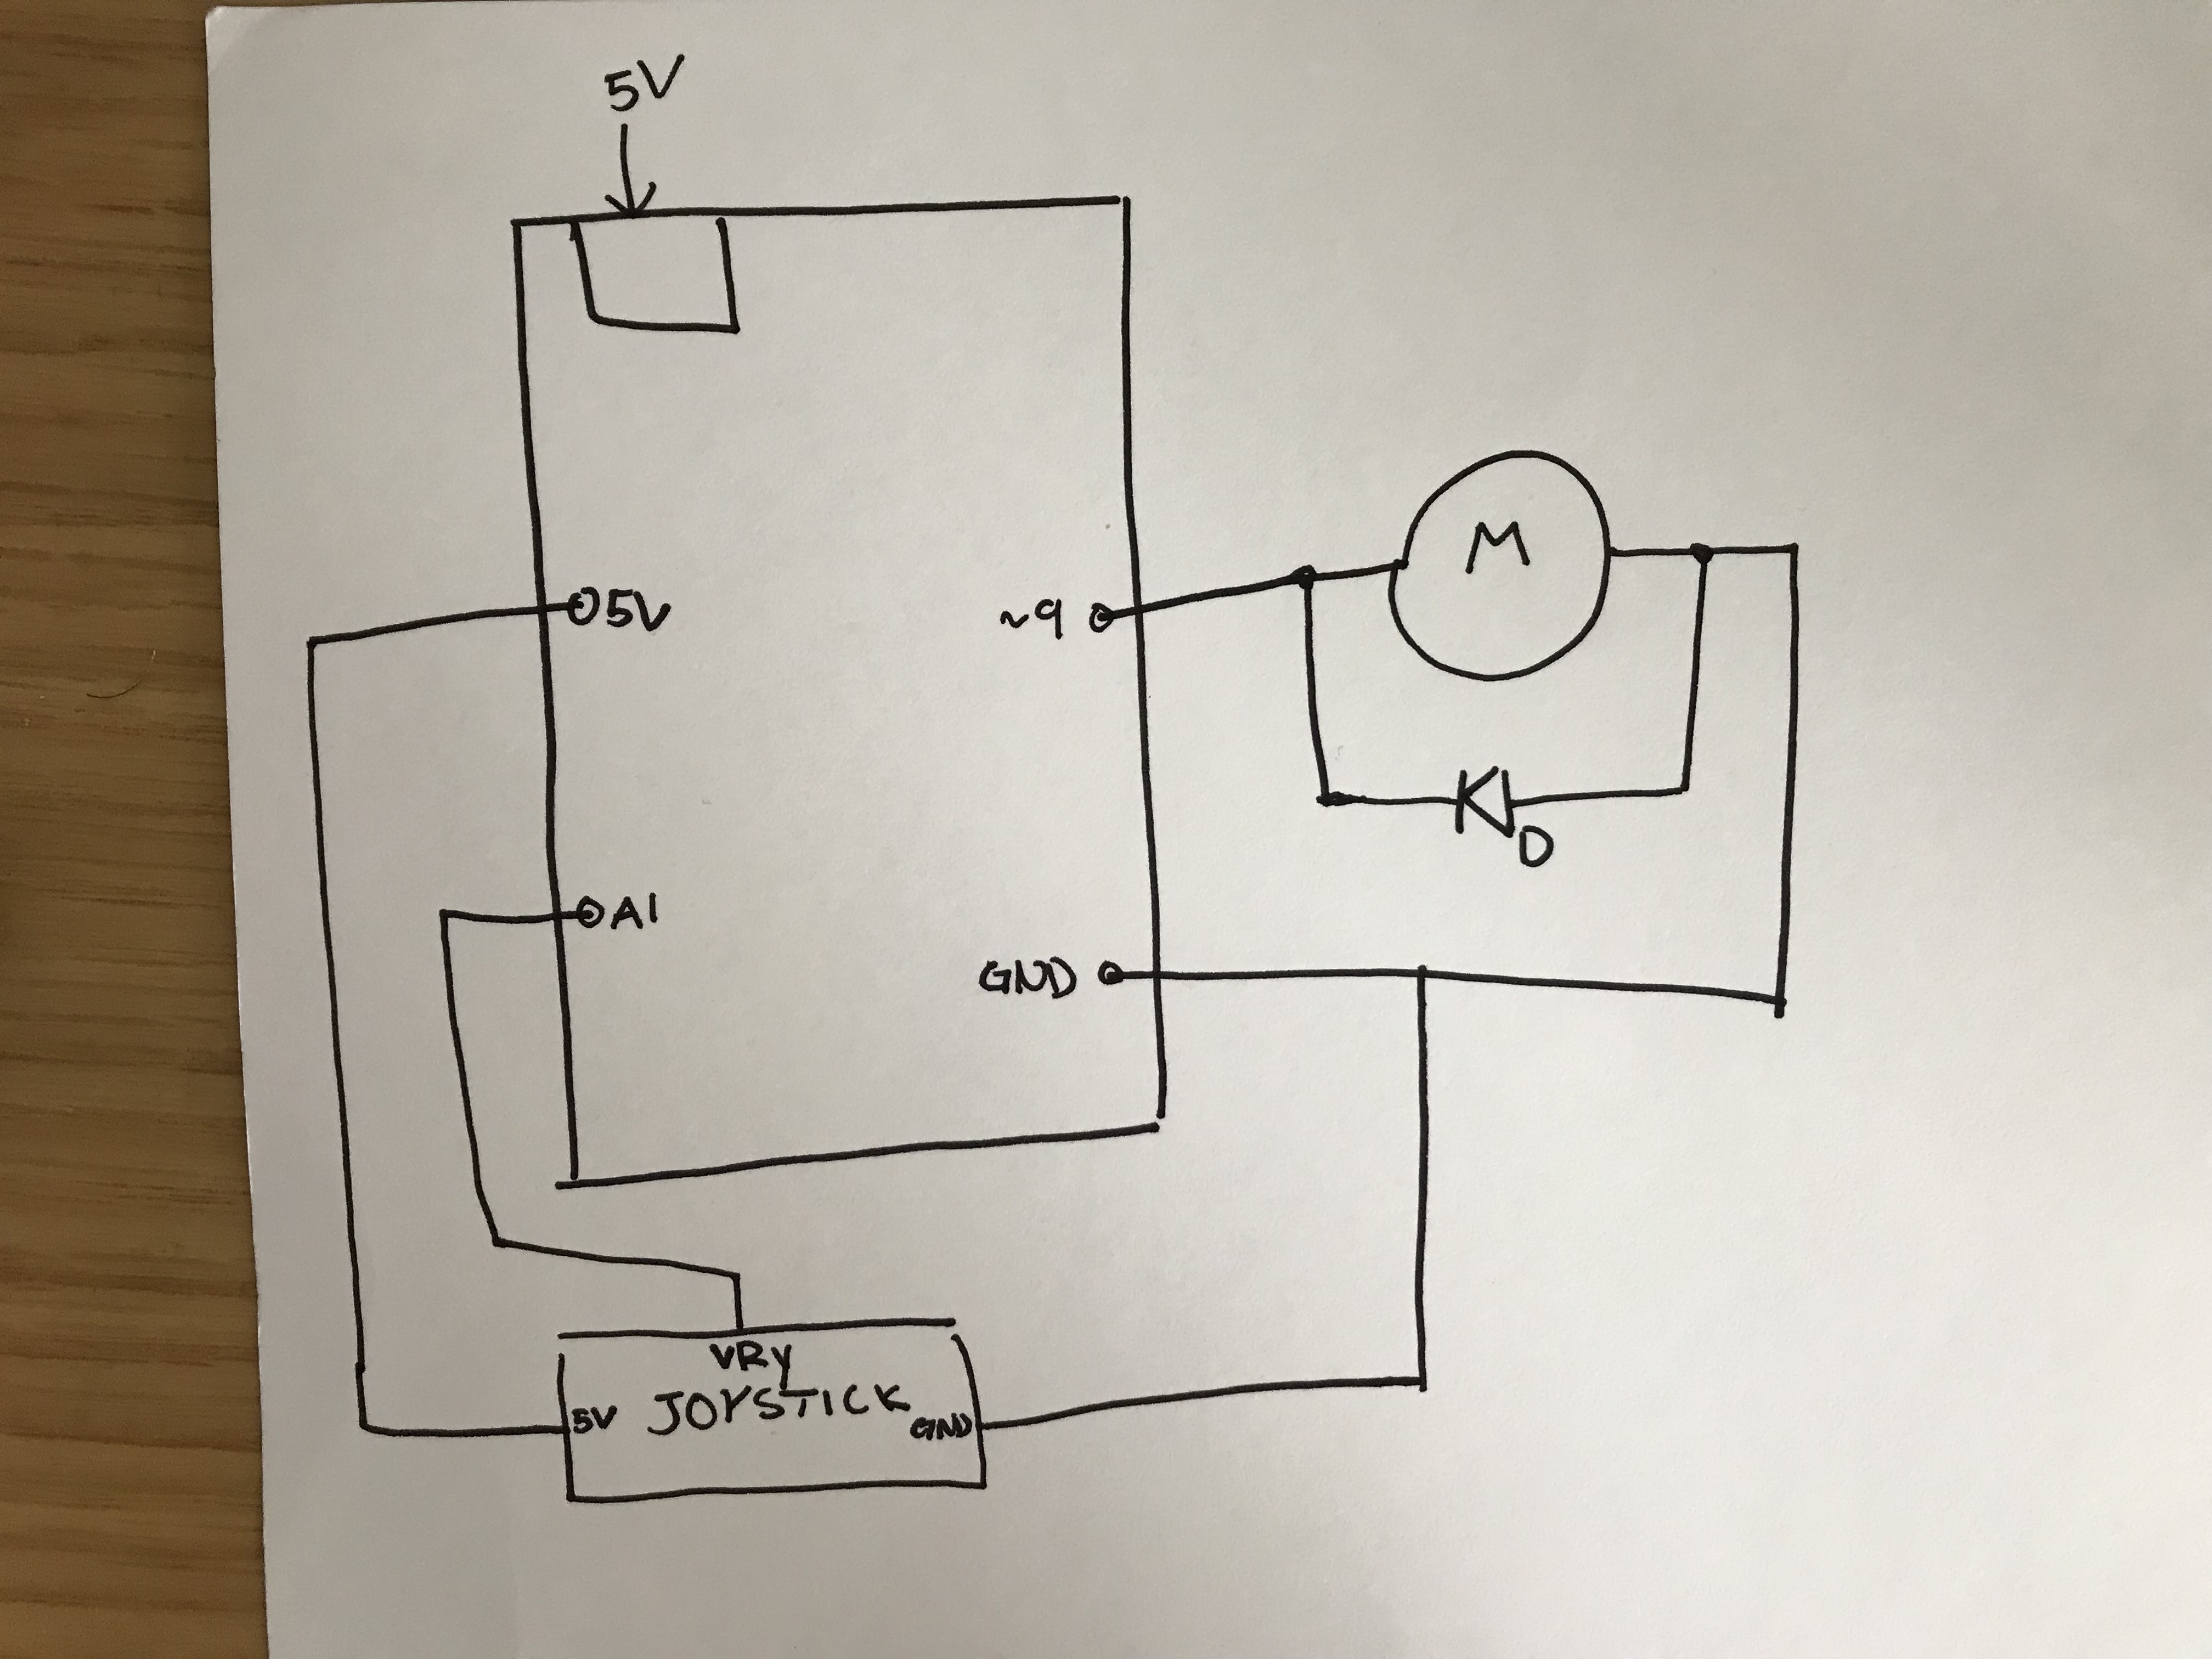 5V
5V
~9
M
D
A1
GND
VRy
JOYSTICK
5V
GND